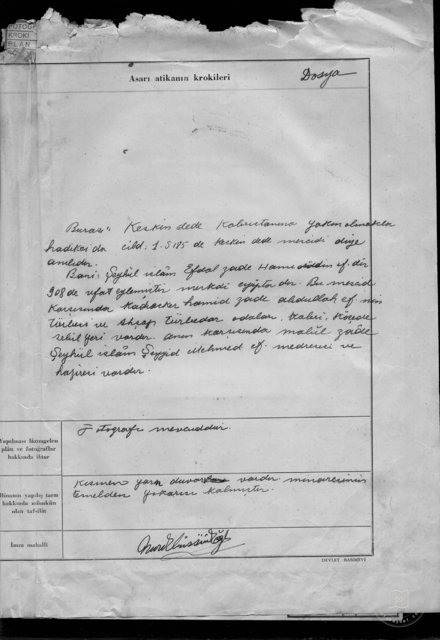 FOTOĞ
KROKİ
PLÂN
Asarı atikanın krokileri
Dosya
Burası Keskin dede Kabristanına yakın olmakla
hadikai da cild: 1. S 185 de keskin dede mescidi diye
Bani: Şeyhül islâm Efdal zade Hamidüddin ef. dir
908 de vefat eylemiştir merkadi eyüpte dir. Bu mescid
Karşısında Kadıasker hamid zade abdullah ef nin
Türbesi ve ahşap Türbedar odaları, Kabri, Köşede
sebil yeri vardır. Anın karşısında malûl zâde
Şeyhül islâm Seyyid Mehmed ef. medresesi ve
haziresi vardır.
Yapılması lâzımgelen
plân ve fotoğraflar
hakkında ihtar
Fotoğrafı mevcuddur.
Binanın yapılış tarzı
hakkında mümkün
olan tafsilât
Kısmen yarı duvar vardır minaresinin
temelden yukarısı kalmıştır.
İmza mahalli
DEVLET BASIMEVİ